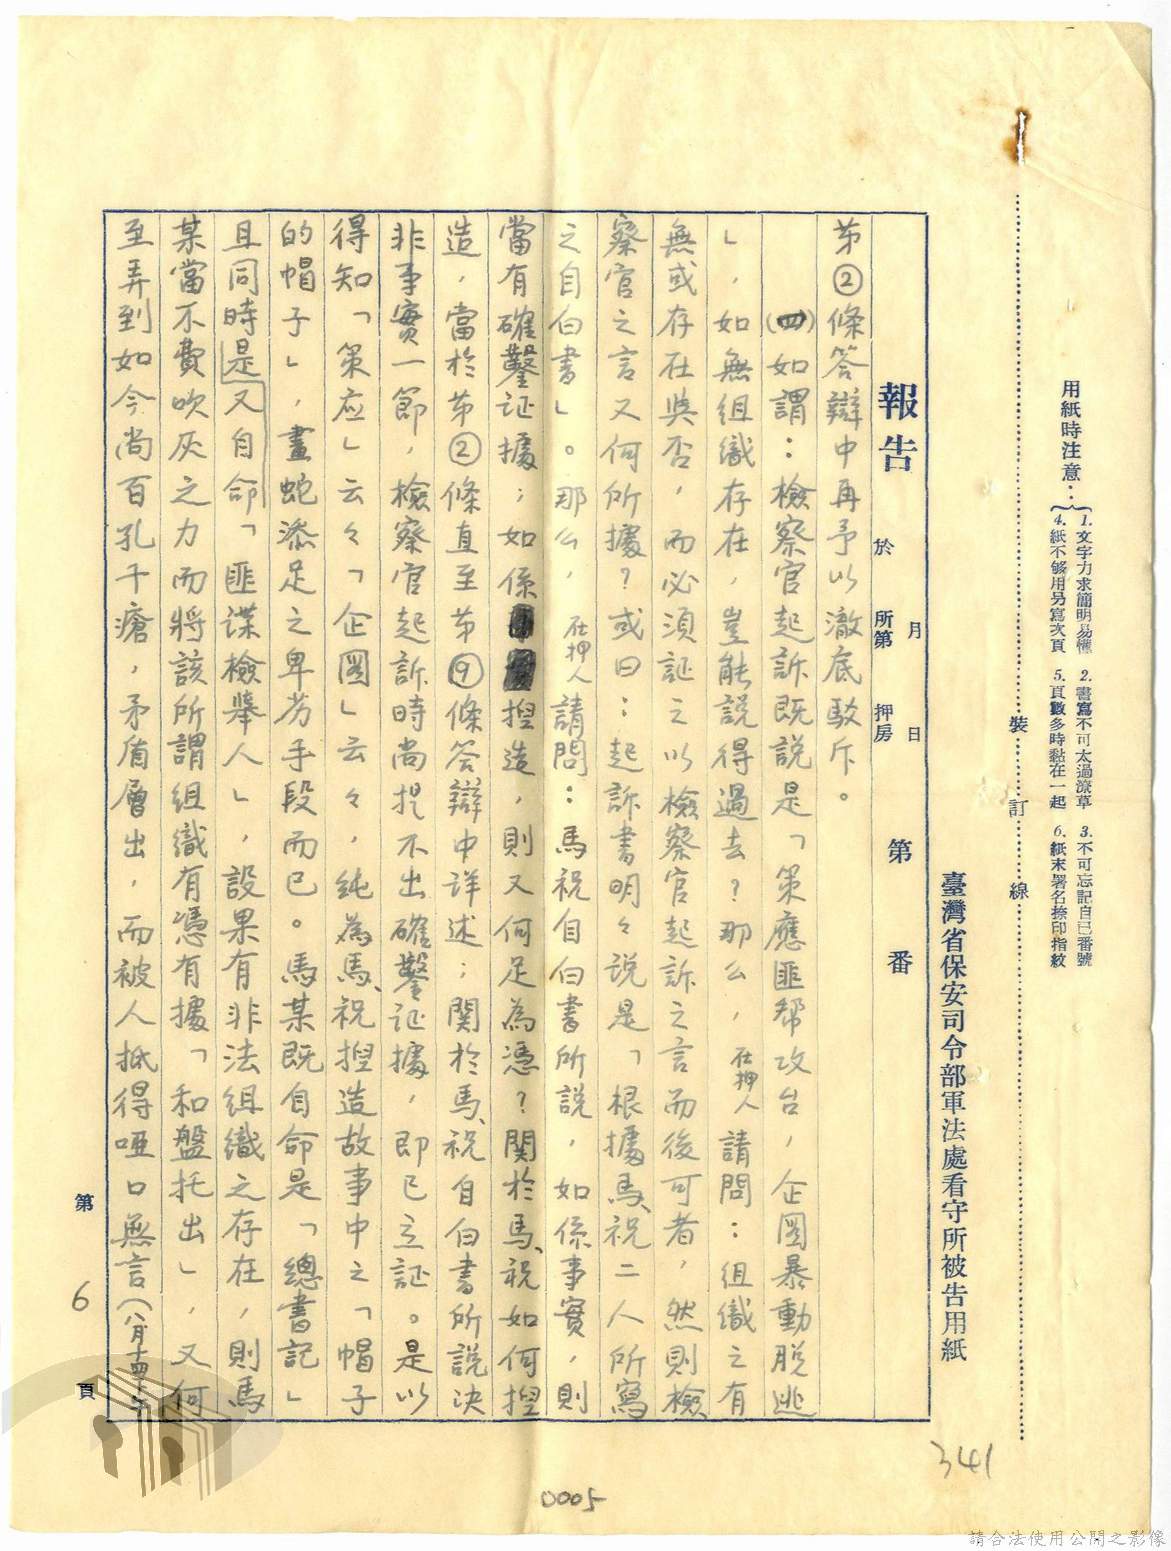 用紙時注意：
1.文字力求簡明易懂　2.書寫不可太過潦草　3.不可忘記自己番號
4.紙不够用另寫次頁　5.頁數多時黏在一起　6.紙末署名捺印指紋
裝　訂　線
臺灣省保安司令部軍法處看守所被告用紙
報告　於　月　日
所第　押房　第　番
苐②條答辯中再予以澈底駁斥。
(四)如謂：檢察官起訴既説是「策應匪幫攻台，企圖暴動脫逃
」，如無組織存在，豈能説得過去？那么，在押人請問：組織之有
無或存在與否，而必須証之以檢察官起訴之言而後可者，然則檢
察官之言又何所據？或曰：起訴書明々説是「根據馬、祝二人所寫
之自白書」。那么，在押人請問：馬祝自白書所説，如係事實，則
當有確鑿証據；如係揑造，則又何足為憑？関於馬、祝如何揑
造，當於苐②條直至苐⑨條答辯中详述；関於馬、祝自白書所説决
非事實一節，檢察官起訴時尚提不出確鑿証據，即已立証。是以
得知「策应」云々「企圖」云々，純為馬、祝揑造故事中之「帽子
的帽子」，畫蛇添足之卑劣手段而已。馬某既自命是「總書記」
且同時是又自命「匪諜檢舉人」，設果有非法組織之存在，則馬
某當不費吹灰之力而將該所謂組織有憑有據「和盤托出」，又何
至弄到如今尚百孔千瘡，矛盾層出，而被人抵得啞口無言（八月十四
第 6 頁
341
0005
請合法使用公開之影像